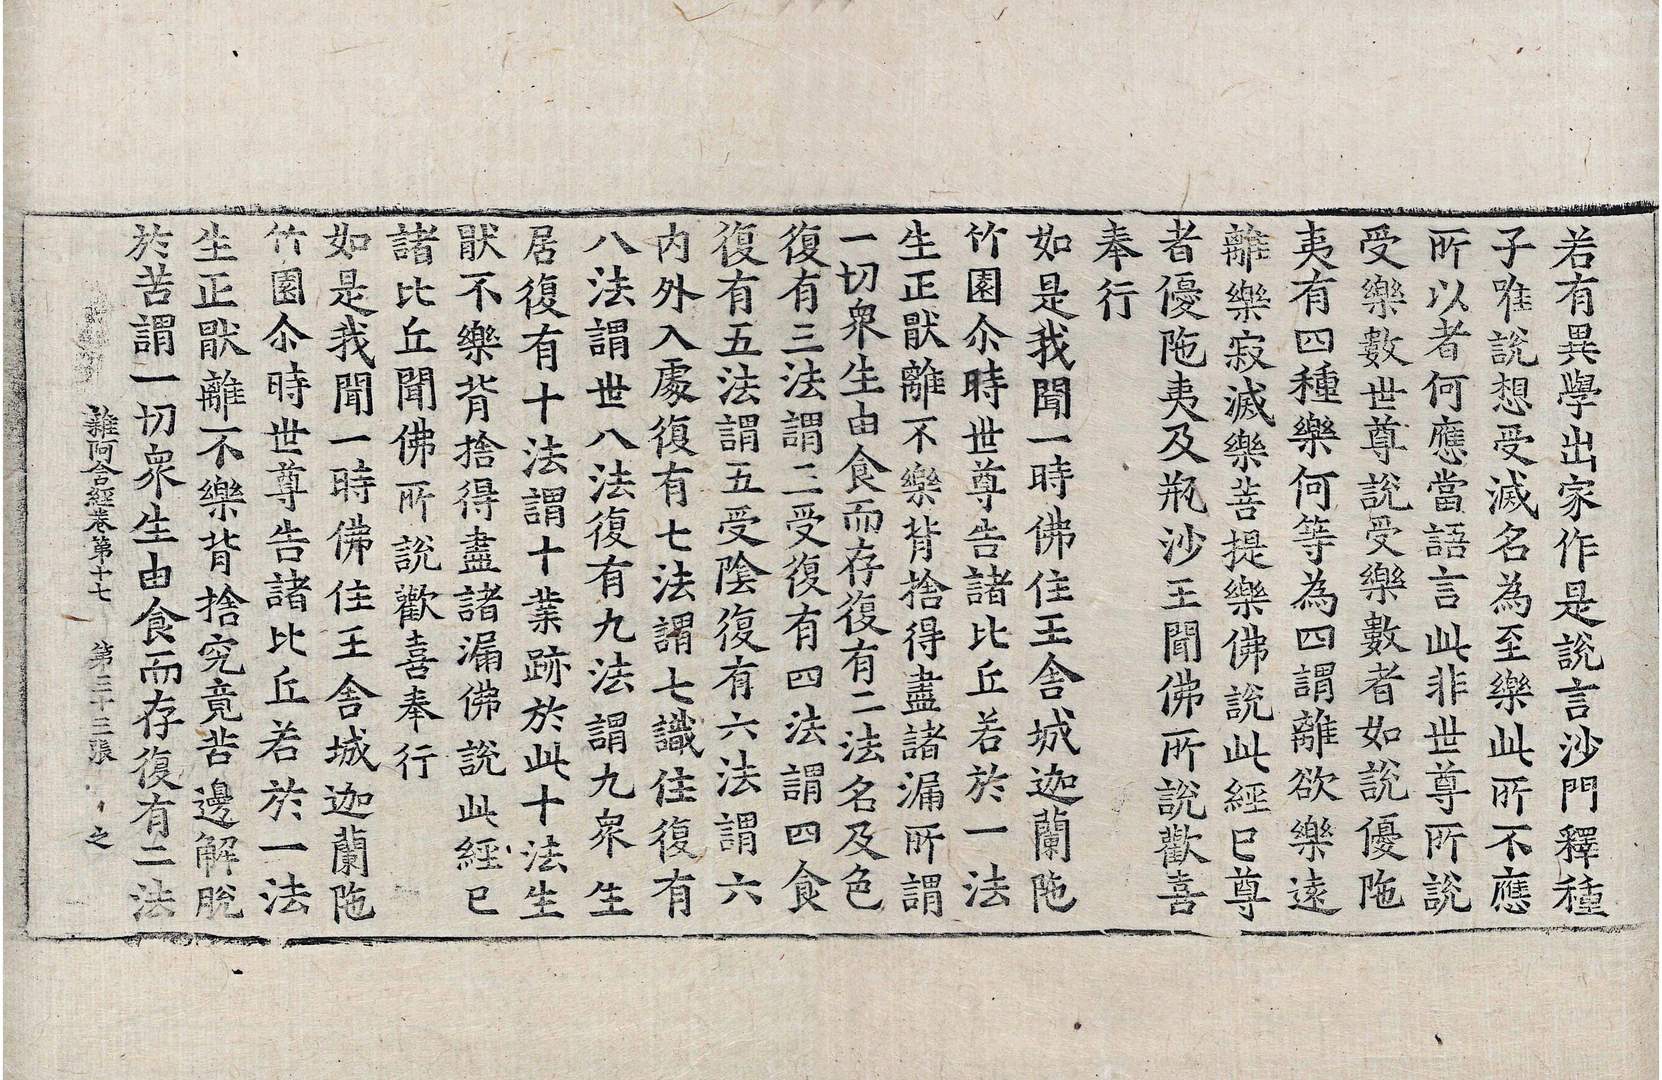 若有異學出家作是說言沙門釋種
子唯說想受滅名為至樂此所不應
所以者何應當語言此非世尊所說
受樂數世尊說受樂數者如說優陁
夷有四種樂何等為四謂離欲樂遠
離樂寂滅樂菩提樂佛說此經已尊
者優陁夷及瓶沙王聞佛所說歡喜
奉行
如是我聞一時佛住王舍城迦蘭陁
竹園尒時世尊告諸比丘若於一法
生正厭離不樂背捨得盡諸漏所謂
一切衆生由食而存復有二法名及色
復有三法謂三受復有四法謂四食
復有五法謂五受陰復有六法謂六
內外入處復有七法謂七識住復有
八法謂世八法復有九法謂九衆生
居復有十法謂十業跡於此十法生
猒不樂背捨得盡諸漏佛說此經已
諸比丘聞佛所說歡喜奉行
如是我聞一時佛住王舍城迦蘭陁
竹園尒時世尊告諸比丘若於一法
生正猒離不樂背捨究竟苦邊解脫
於苦謂一切衆生由食而存復有二法
雜阿含經卷第十七 第三十三張 之